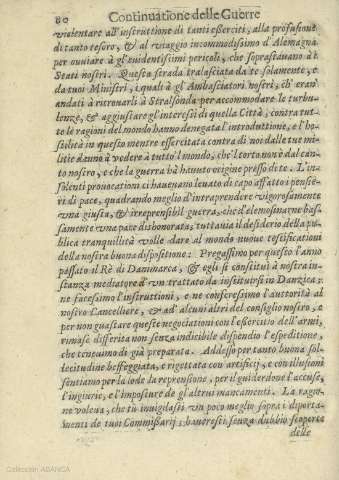 80 Continuatione delle Guerre
violentare all'instruttione di tanti esserciti, alla profusione
di tanto tesoro, & al viaggio incommodissimo d'Alemagna
per ouuiare à gl'euidentissimi pericoli, che soprastauano à i
Stati nostri. Questa strada tralasciata da te solamente, e
da tuoi Ministri, i quali à gl'Ambasciatori nostri, ch'eran'
andati à ritrouarli à Stralsonda per accommodare le turbu-
lenze, & aggiustare gl'interessi di quella Città, contra tut-
te le ragioni del mondo hanno denegata l'introduttione, e l'ho-
stilità in questo mentre essercitata contra di noi dalle tue mi-
litie danno à vedere à tutto l'mondo, che l'torto non è dal can-
to nostro, e che la guerra hà hauuto origine presso di te. L'in-
solenti prouocationi ci haueuano leuato di capo affatto i pensie-
ri di pace, quadrando meglio d'intraprendere vigorosamente
vna giusta, & irreprensibil guerra, che d'elemosinarne bas-
samente vna pace disbonorata; tuttauia il desiderio della pu-
blica tranquillità volle dare al mondo nuoue testificationi
della nostra buona dispositione: Pregassimo per questo l'anno
passato il Rè di Danimarca, & egli si constituì à nostra in-
stanza mediatore d'vn trattato da instituirsi in Danzica;
ne facessimo l'instruttioni, e ne conferessimo l'autorità al
nostro Cancelliere, & ad' alcuni altri del consiglio nostro, e
per non guastare queste negociationi con l'essercitio dell'armi,
rimase differita non senza indicibile dispendio l'espeditione,
che teneuamo di già preparata. Adesso per tanto buona sol-
lecitudine beffeggiata, e rigettata con artificij, e con illusioni
sentiamo per la lode la reprensione, per il guiderdone l'accuse,
l'ingiurie, e l'imposture de gl'altrui mancamenti. La ragio-
ne voleua, che tù inuigilassi vn poco meglio sopra i diporta-
menti de tuoi Commissarij; haueresti senza dubbio scoperte
delle
Colección ABANCA